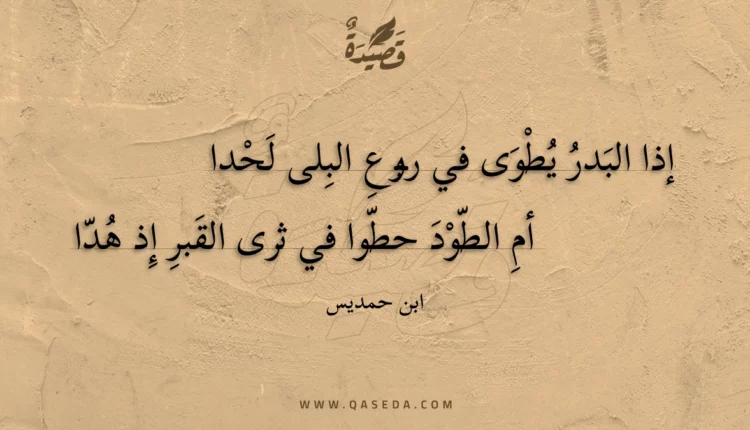 قَصِيدَةٌ
إذا البَدرُ يُطْوَى في ربوعِ البِلى لَحْدا
أمِ الطّوْدَ حطّوا في ثرى القَبرِ إِذ هُدّا
ابن حمديس
WWW.QASEDA.COM